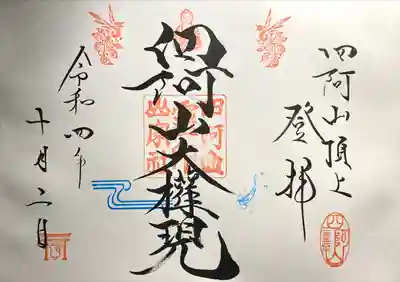 四阿山頂上
登拝
四阿山大権現
令和四年
十月二日